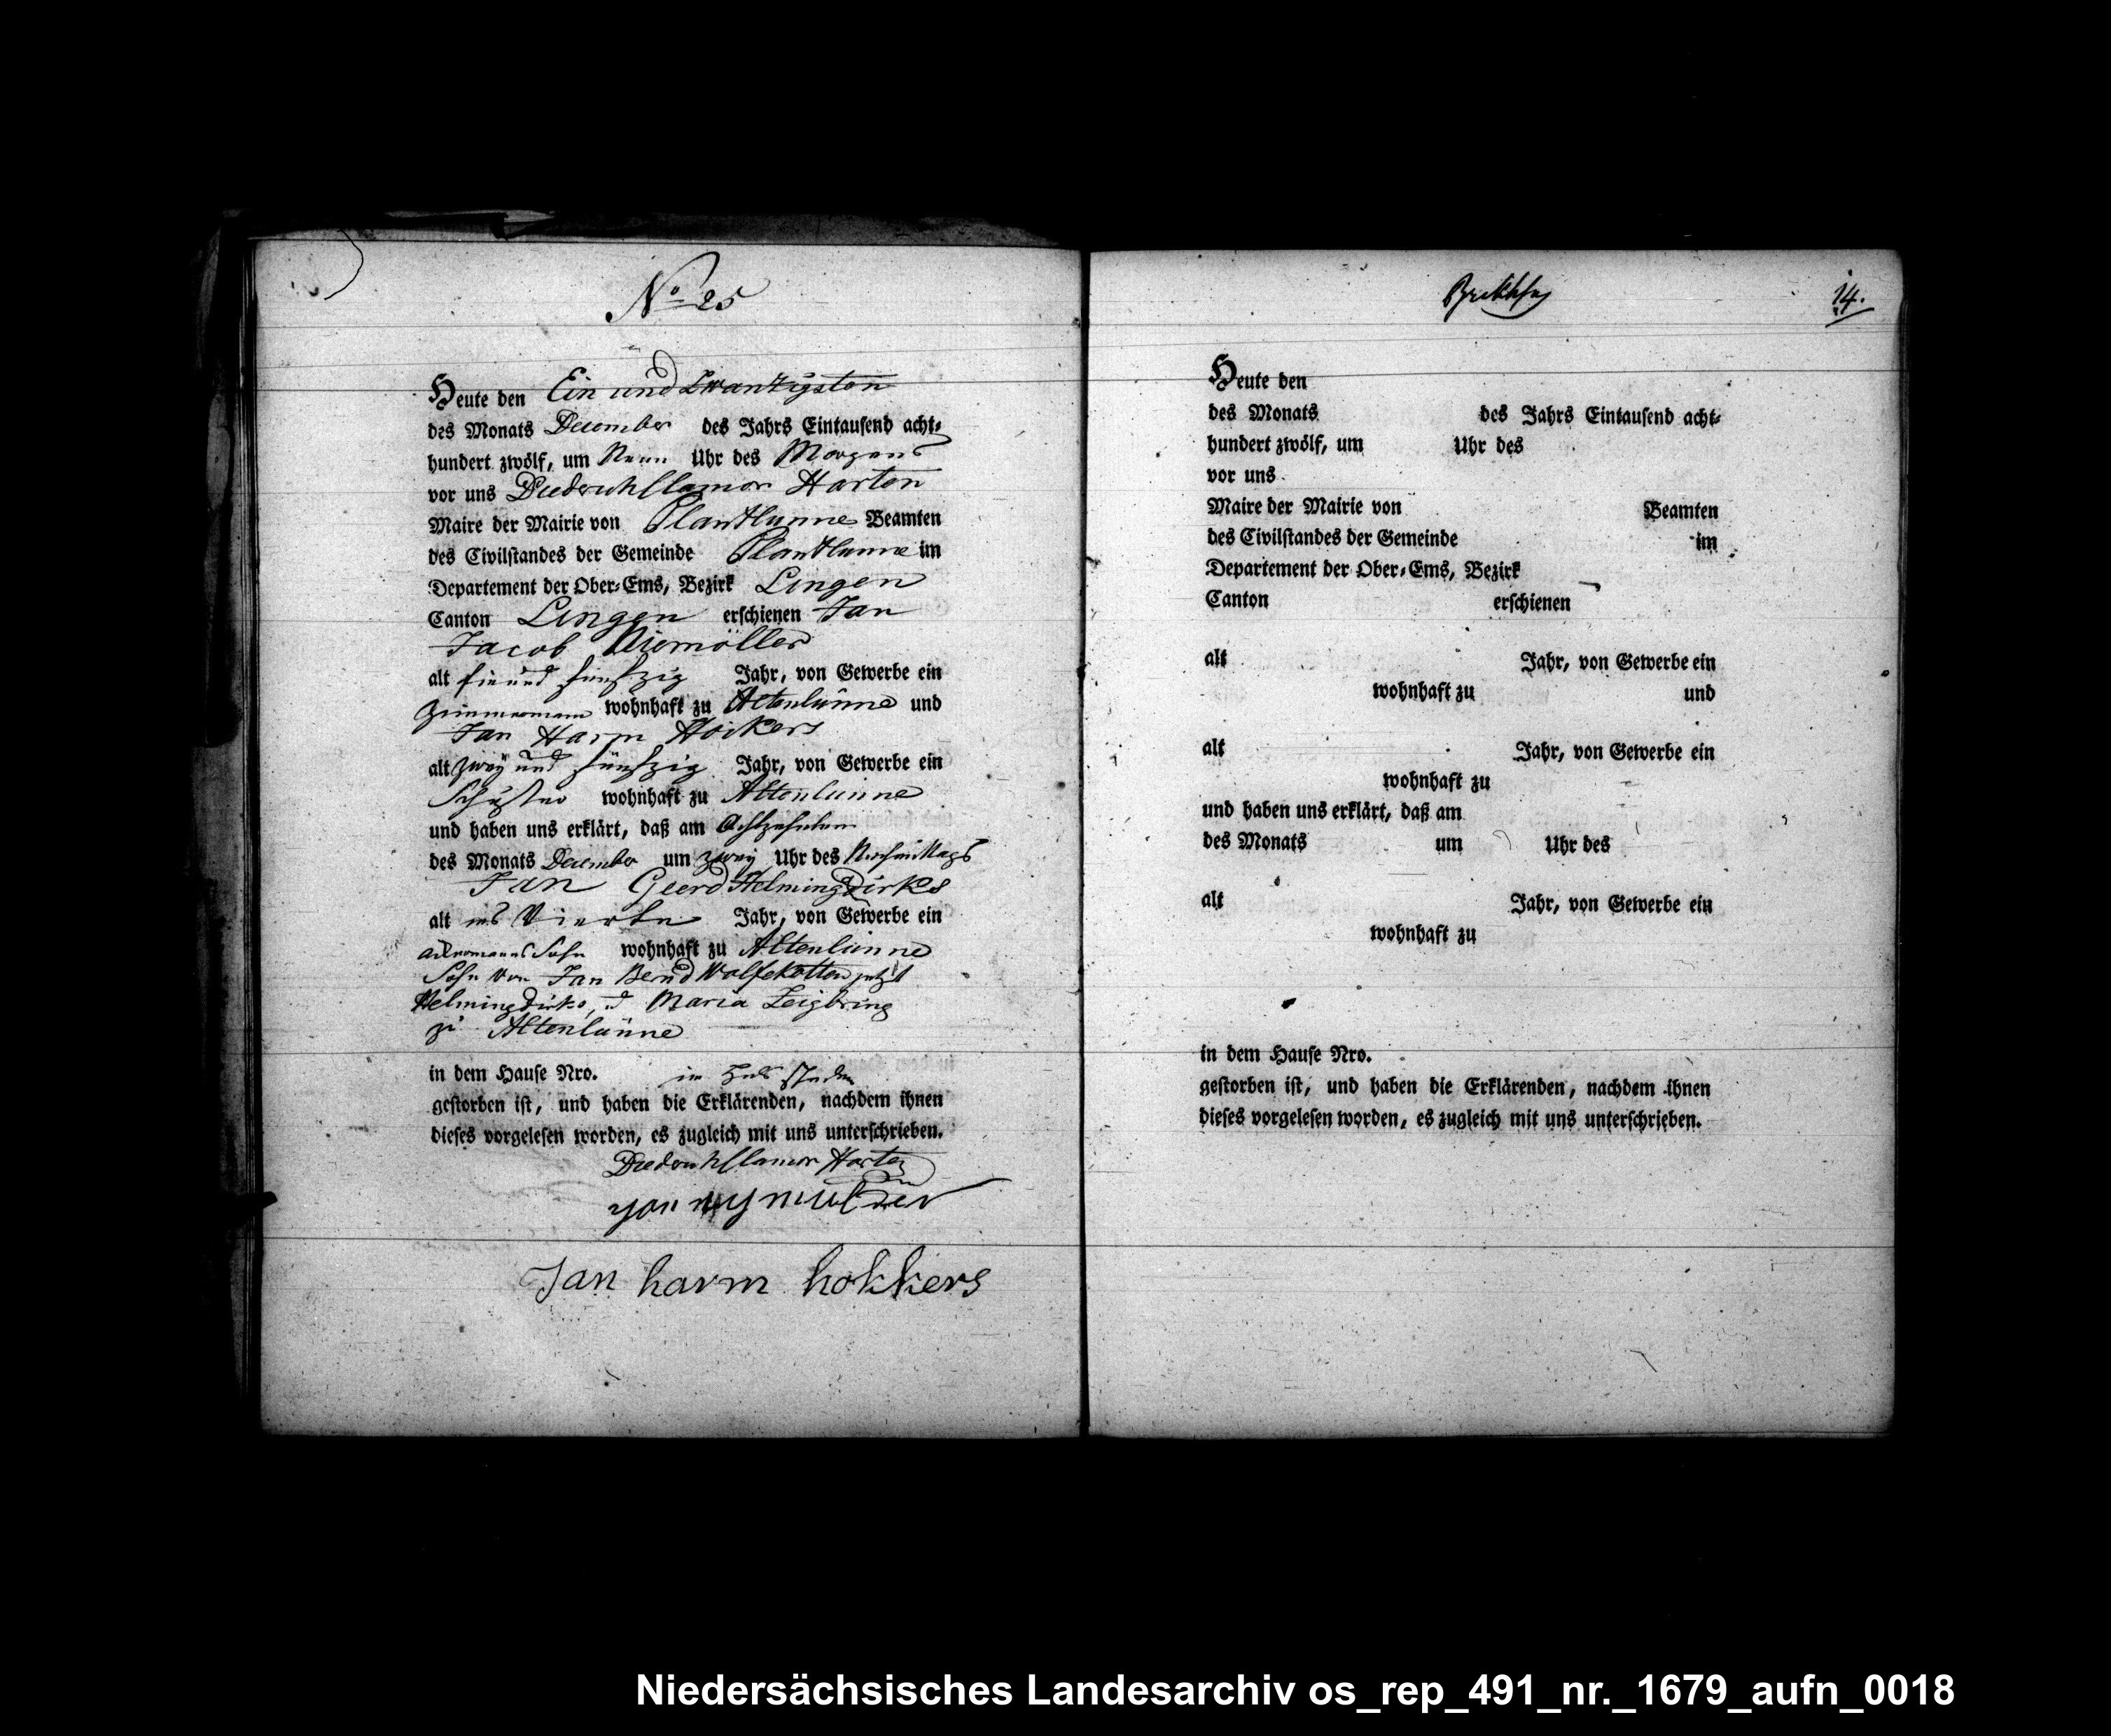 No 25
Heute den Ein und Zwantzigsten
des Monats December des Jahrs Eintausend acht-
hundert zwölf, um Neun Uhr des Morgens
vor uns Diederich Clamor Harten
Maire der Mairie von Plantlünne Beamten
des Civilstandes der Gemeinde Plantlünne im
Departement der Ober-Ems, Bezirk Lingen
Canton Lingen erschienen Jan
Jacob Niemöller
alt und funfzig Jahr, von Gewerbe ein
Zimmermann wohnhaft zu Altenlünne und
Jan Harm Höckers
alt zwey und fünfzig Jahr, von Gewerbe ein
Schuster wohnhaft zu Altenlünne
und haben uns erklärt, daß am Achtzehnten
des Monats December um zwey Uhr des Nachmittags
Jan Geerd Helming Dirks
alt ins Vierte Jahr, von Gewerbe ein
Ackermanns Sohn wohnhaft zu Altenlünne
Sohn von Jan Bernd Wolfskotten jetzt
Helming Dirks, u Maria
zu Altenlünne
in dem Hause Nro. im
gestorben ist, und haben die Erklärenden, nachdem ihnen
dieses vorgelesen worden, es zugleich mit uns unterschrieben.
Diederich Clamor Harten
yan nymulder
Jan harm hokkers
14.
Heute den
des Monats des Jahrs Eintausend acht-
hundert zwölf, um Uhr des
vor uns
Maire der Mairie von Beamten
des Civilstandes der Gemeinde im
Departement der Ober-Ems, Bezirk
Canton erschienen
alt Jahr, von Gewerbe ein
wohnhaft zu und
alt Jahr, von Gewerbe ein
wohnhaft zu
und haben uns erklärt, daß am
des Monats um Uhr des
alt Jahr, von Gewerbe ein
wohnhaft zu
in dem Hause Nro.
gestorben ist, und haben die Erklärenden, nachdem ihnen
dieses vorgelesen worden, es zugleich mit uns unterschrieben.
Niedersächsisches Landesarchiv os_rep_491_nr._1679_aufn_0018